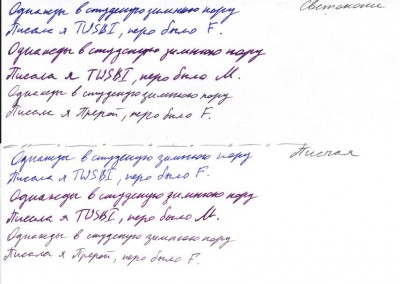 Однажды в студеную зимнюю пору
Светокопи
Писала я TWSBI, перо было F.
Однажды в студеную зимнюю пору
Писала я TWSBI, перо было M.
Однажды в студеную зимнюю пору
Писала я Пререй, перо было F.
Однажды в студеную зимнюю пору
Писчая
Писала я TWSBI, перо было F.
Однажды в студеную зимнюю пору
Писала я TWSBI, перо было M.
Однажды в студеную зимнюю пору
Писала я Прерой, перо было F.